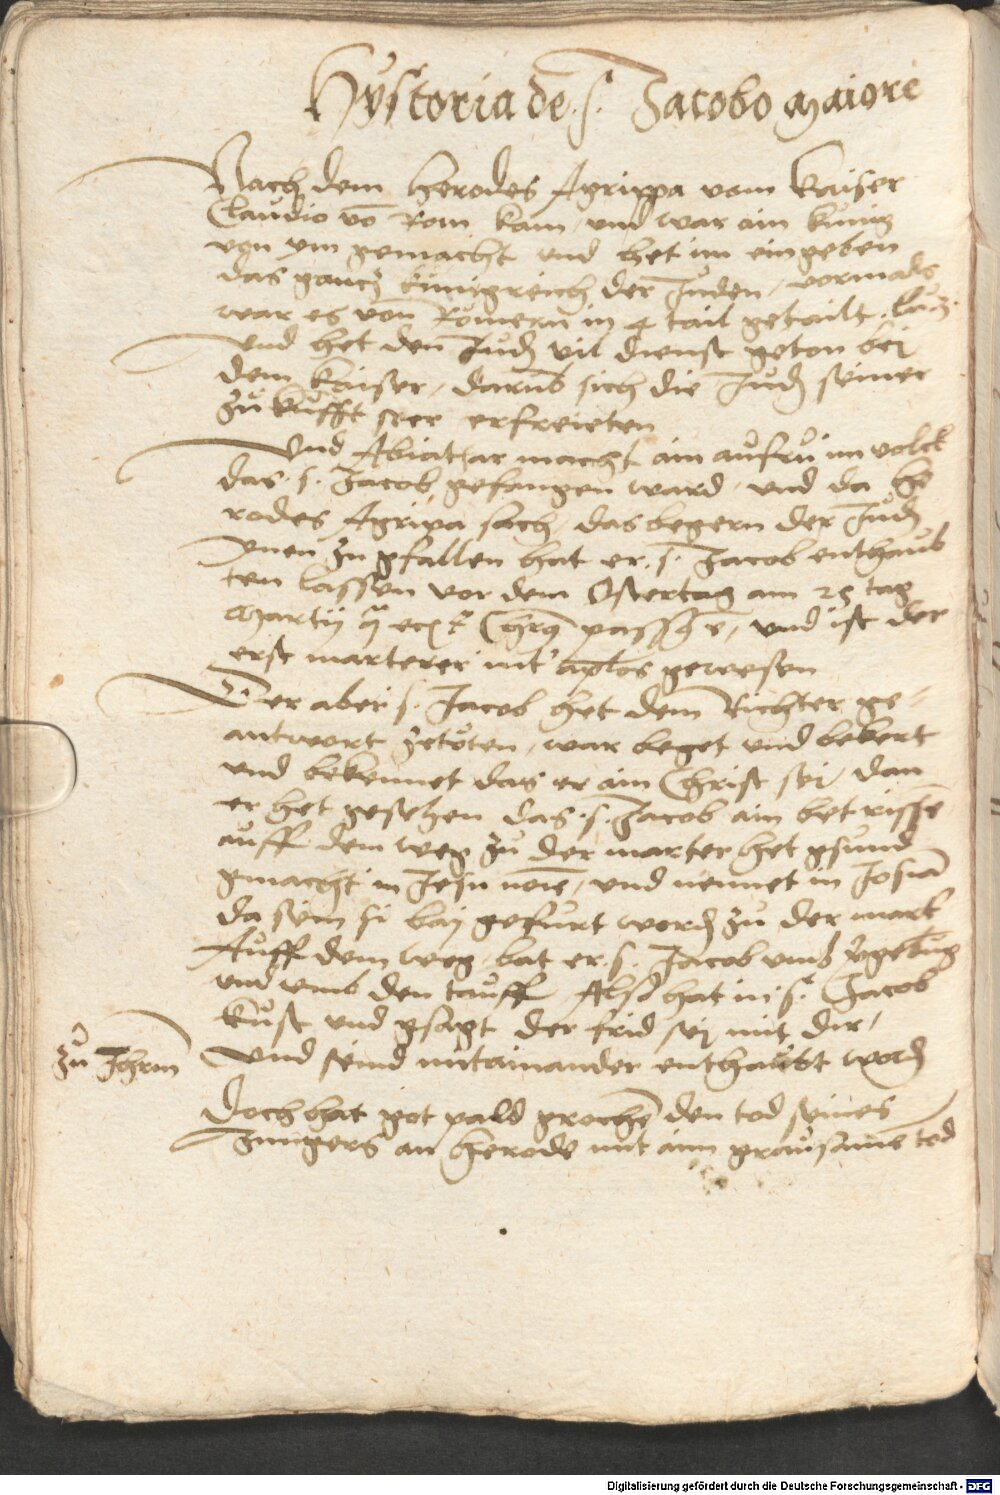 Hystoria de .s. Jacobo maiore
Nach dem Herodes Agrippa vom Kaiser
Claudio võ Rom kam, und war ain kunig
von ym gemacht und het im eingeben
das gancz kunigreich der Juden, vormals
war es von Romern in 4 tail getailt
Und het den Judẽ vil dienst geton bei
dem Kaiser, darumb sich die Judẽ seiner
zukufft seer erfreieten
Und Abiathar macht ain aufrur im volck
das .s. Jacob gefangen ward, und da He
rodes Agripa sach, das begern der Judẽ
ynen zu gfallen hat er .s. Jacob enthaub
ten lassen vor dem Ostertag am 25 tag
Martij und ist der
erst marterer int' aplõs gewesen
Der aber s. Jacob het dem Richter ge-
antwort zetöten, war beget und bekert
und bekennet das er ain Christ sei, dan
er het gesehen das .s. Jacob ain betrisse
auff dem weg zu der marter het gsund
gmacht in Jesu noïe, und nennet in Josiã
da seim si baj gefurt wordẽ zu der mart'
Auff dem weg bat er .s. Jacob umb v'gebũg
und umb den tauff Also hat in .s. Jacob
kust und gsagt der frid sej mit dir,
zu Jhrm
Und seind mitainander enthaubt wordẽ
Doch hat got pald grochẽ den tod seines
Jungers an Herode mit aim grausamẽ tod
Digitalisierung gefördert durch die Deutsche Forschungsgemeinschaft - DFG